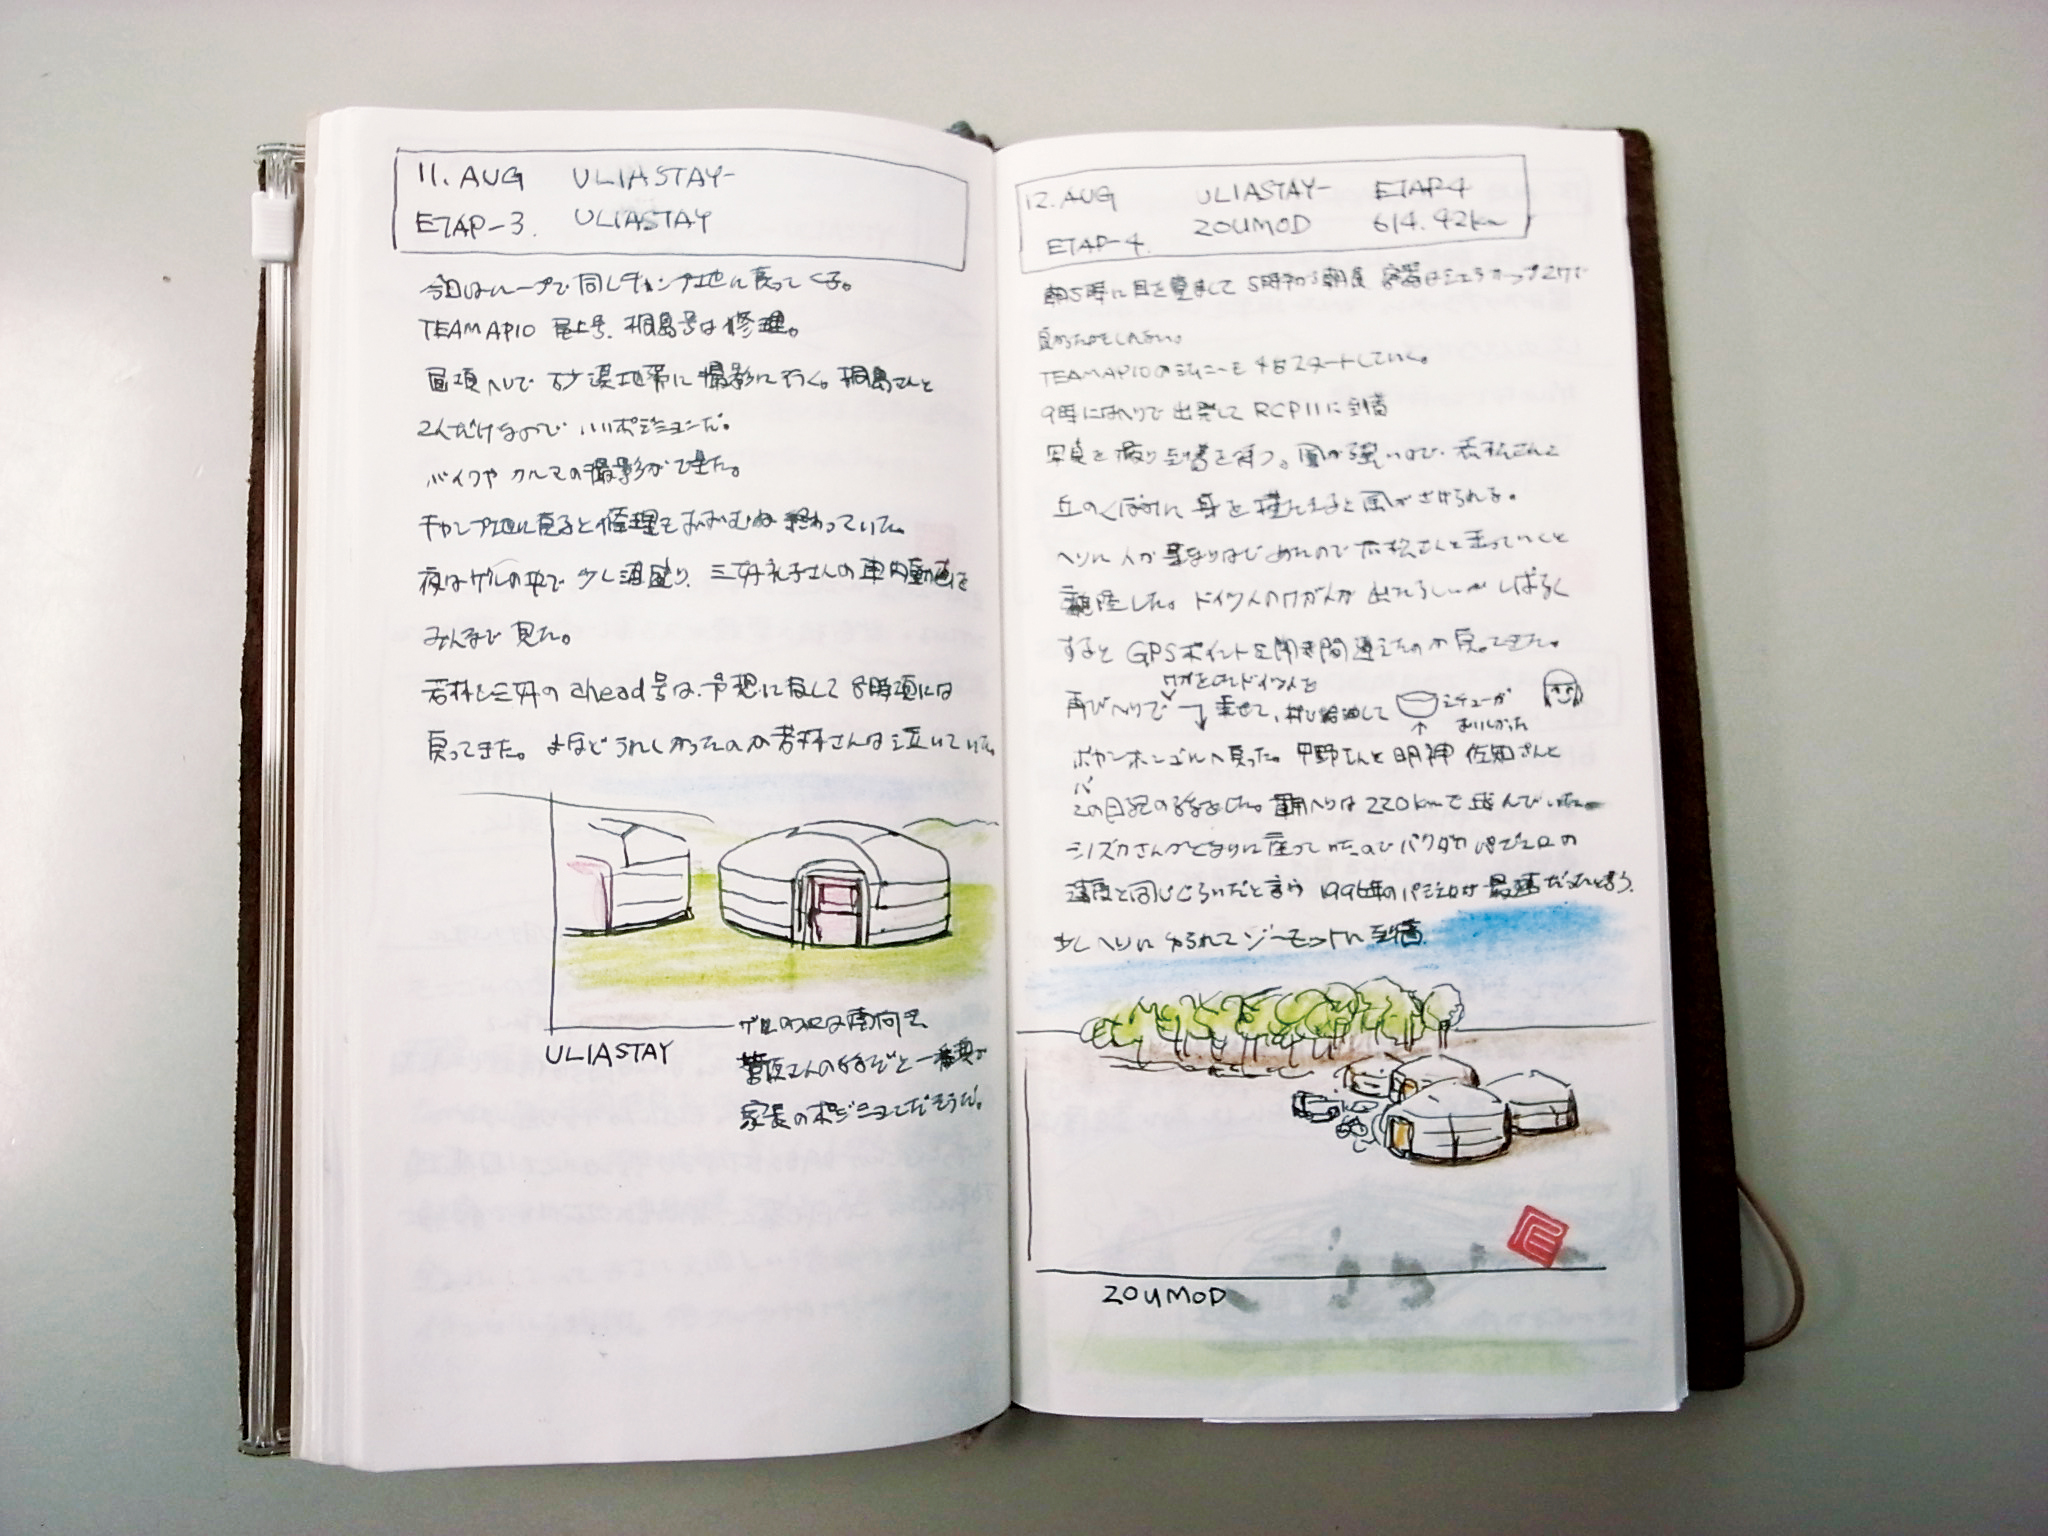 11. AUG ULIASTAY-
ETAP-3. ULIASTAY
今日はループで同じキャンプ地に戻ってくる。
TEAM APIO 尾上号、桐島号は修理。
昼頃ヘリで砂漠地帯に撮影に行く。桐島さんと
2人だけなので いいポジションだ。
バイクやクルマの撮影ができた。
キャンプ地に戻ると修理もおおむね終わっていた。
夜はゲルの中で少し酒盛り、三好礼子さんの車内動画を
みんなで見た。
若林と三好のahead号は、予想に反して8時頃には
戻ってきた。よほどうれしかったのか若林さんは泣いていた。
ULIASTAY
ゲルの入口は南向き
菅原さんの話だと一番奥が
家長のポジションだそうだ。
12. AUG ULIASTAY- ETAP4
ETAP-4. ZOUMOD 614.92km
朝5時に目を覚まして 5時半から朝食 容器はシェラカップ2ケで
良かったかもしれない。
TEAM APIOのジムニーも4台スタートしていく。
9時にはヘリで出発して RCP11に到着
写真を撮り到着を待つ。風が強いので、若松さんと
丘のくぼみに身を横たえると風がさけられる。
ヘリに人が集まりはじめたので 若松さんと走っていくと
離陸した。ドイツ人のケガ人が出たらしいが しばらく
すると GPSポイントを聞き間違えたのか戻ってきた。
ケガをしたドイツ人を
再びヘリで 乗せて、 給油して シチューが
おいしかった
ボヤンホンゴルへ戻った。 さんと 明神 佐知さんと
バ
この日記の話をした。 ヘリは 220kmで飛んでいた。
シノズカさんがとなりに座っていたので パリダカ パジェロの
速度と同じぐらいだと言う 1996年のパジェロが最速だったと言う。
少しヘリにゆられてゾーモットに到着
ZOUMOD